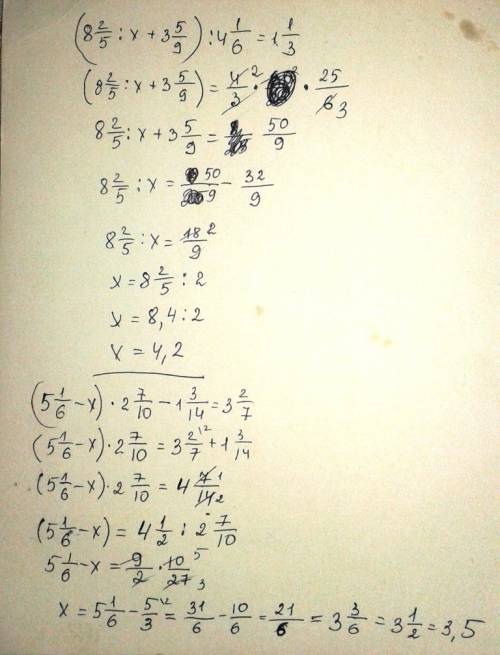 (8 2/5 : x + 3 5/9) : 4 1/6 = 1 1/3
(8 2/5 : x + 3 5/9) = 4/3 · 25/6 2 3
8 2/5 : x + 3 5/9 = 50/9
8 2/5 : x = 50/9 - 32/9
8 2/5 : x = 18/9 2
x = 8 2/5 : 2
x = 8,4 : 2
x = 4,2
(5 1/6 - x) · 2 7/10 - 1 3/14 = 3 2/7
(5 1/6 - x) · 2 7/10 = 3 2/7 12 + 1 3/14
(5 1/6 - x) · 2 7/10 = 4 7/14 1 2
(5 1/6 - x) = 4 1/2 : 2 7/10
5 1/6 - x = 9/2 · 10/27 5 3
x = 5 1/6 - 5/3 12 = 31/6 - 10/6 = 21/6 = 3 3/6 = 3 1/2 = 3,5